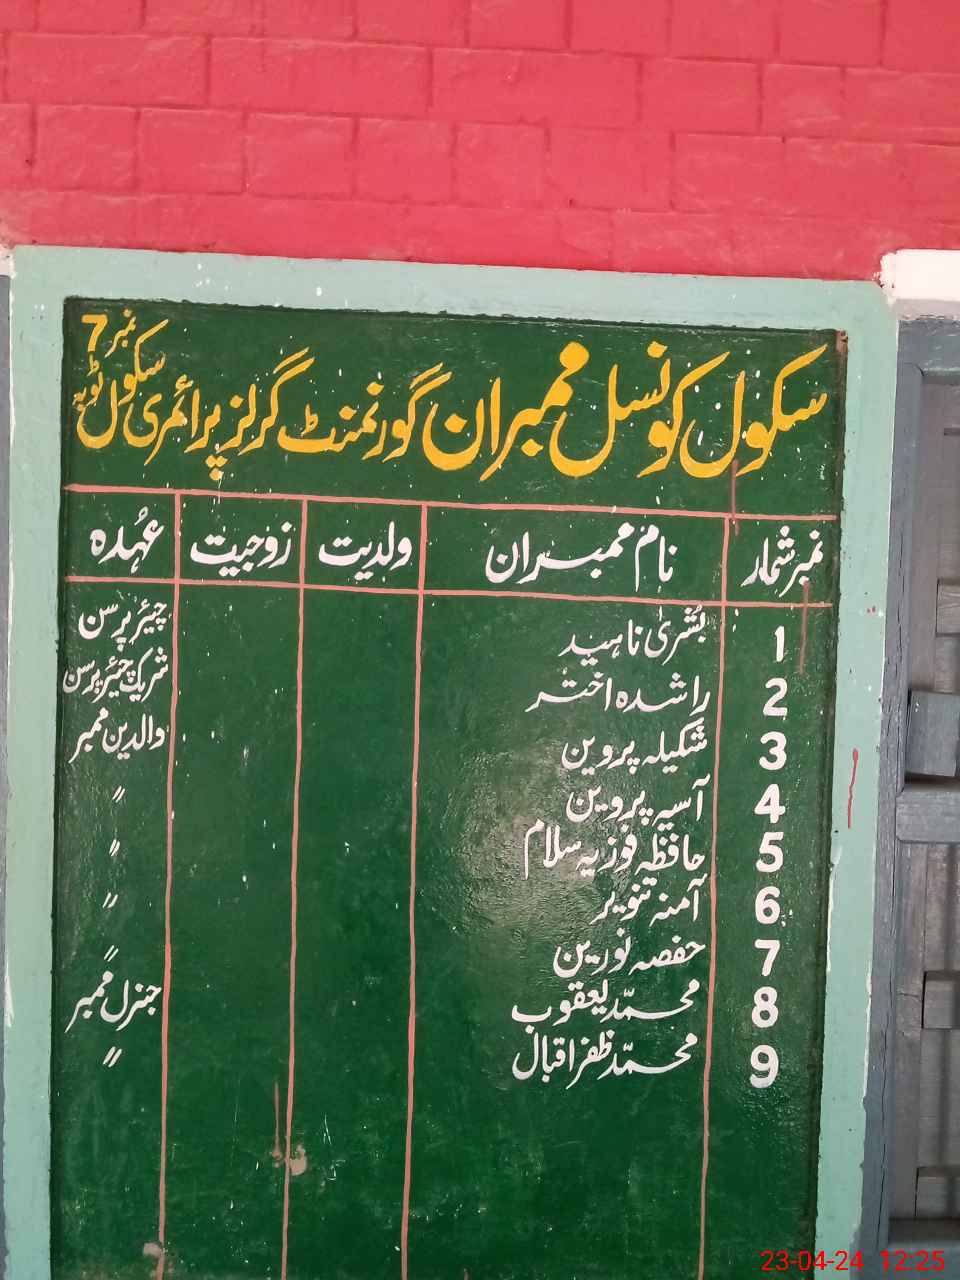 سکول کونسل ممبران گورنمنٹ گرلز پرائمری سکول نمبر 7 ٹوبہ
نمبر شمار نام ممبران ولدیت زوجیت عہدہ
1 بشریٰ ناہید چیئر پرسن
2 راشدہ اختر شریک چیئر پرسن
3 شکیلہ پروین والدین ممبر
4 آسیہ پروین 〃
5 حافظہ فوزیہ سلام 〃
6 آمنہ تنویر 〃
7 حفصہ نورین 〃
8 محمّد یعقوب جنرل ممبر
9 محمّد ظفر اقبال 〃
23-04-24 12:25